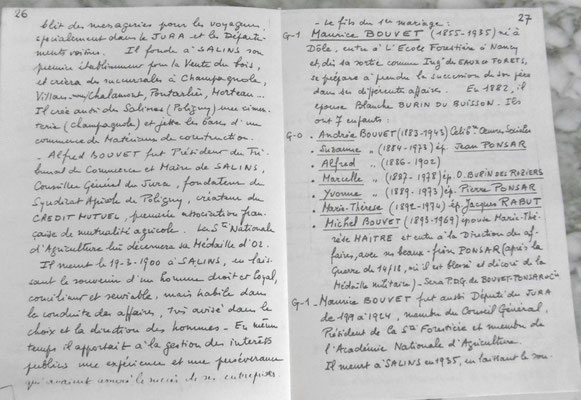 26
blit des messageries pour les voyageurs
spécialement dans le JURA et les Départe-
ments voisins. Il fonde à SALINS son
premier établissement pour la Vente du bois,
et créera des succursales à Champagnole,
Chalamont, Pontarlier, Morteau...
Il crée aussi des Salines (Poligny) une cimen-
terie (Champagnole) et jette les bases d'un
commerce de Matériaux de construction.
- Alfred BOUVET fut Président du Tri-
bunal du Commerce et Maire de SALINS,
Conseiller Général du Jura, fondateur du
Syndicat Agricole de Poligny, créateur du
CREDIT MUTUEL, première association fran-
çaise de mutualité agricole. La Sté Nationale
d'Agriculture lui décernera sa Médaille d'OR.
Il meurt le 19-3-1900 à SALINS, en lais-
sant le souvenir d'un homme droit et loyal,
conciliant et serviable, mais habile dans
la conduite des affaires, très avisé dans le
choix et la direction des hommes - En même
temps il apportait à la gestion des intérêts
publics une expérience et une persévérance
qui avaient assuré le succès de ses entreprises
27
- Le fils du 1er mariage :
G-1 Maurice BOUVET (1855-1935) né à
Dôle, entre à l'Ecole Forestière à Nancy
et, dès sa sortie comme Ingr des EAUX et FORETS,
se prépare à prendre la succession de son père
dans ses différentes affaires. En 1882, il
épouse Blanche BURIN DU BUISSON. Ils
ont 7 enfants :
G-0 - Andrée BOUVET (1883-1943) Célibre Œuvres Sociales
- Suzanne " (1884-1973) ép. Jean PONSAR
- Alfred " (1886-1902)
- Marcelle " (1887-1978) ép. O. BURIN DES ROZIERS
- Yvonne " (1889-1973) ép. Pierre PONSAR
- Marie-Thérèse (1892-1974) ép. Jacques RABUT
- Michel BOUVET (1893-1969) épouse Marie-Thé-
rèse MAITRE et entre à la Direction des af-
faires, avec ses beaux-frères PONSAR (après la
Guerre de 14/18, où il est blessé et décoré de la
Médaille militaire) - Sera P.D.G de BOUVET-PONSAR
G-1 - Maurice BOUVET fut aussi Député du JURA
de à 1924, membre du Conseil Général,
Président de la Sté Forestière et membre de
l'Académie Nationale d'Agriculture.
Il meurt à SALINS en 1935, en laissant le sou-